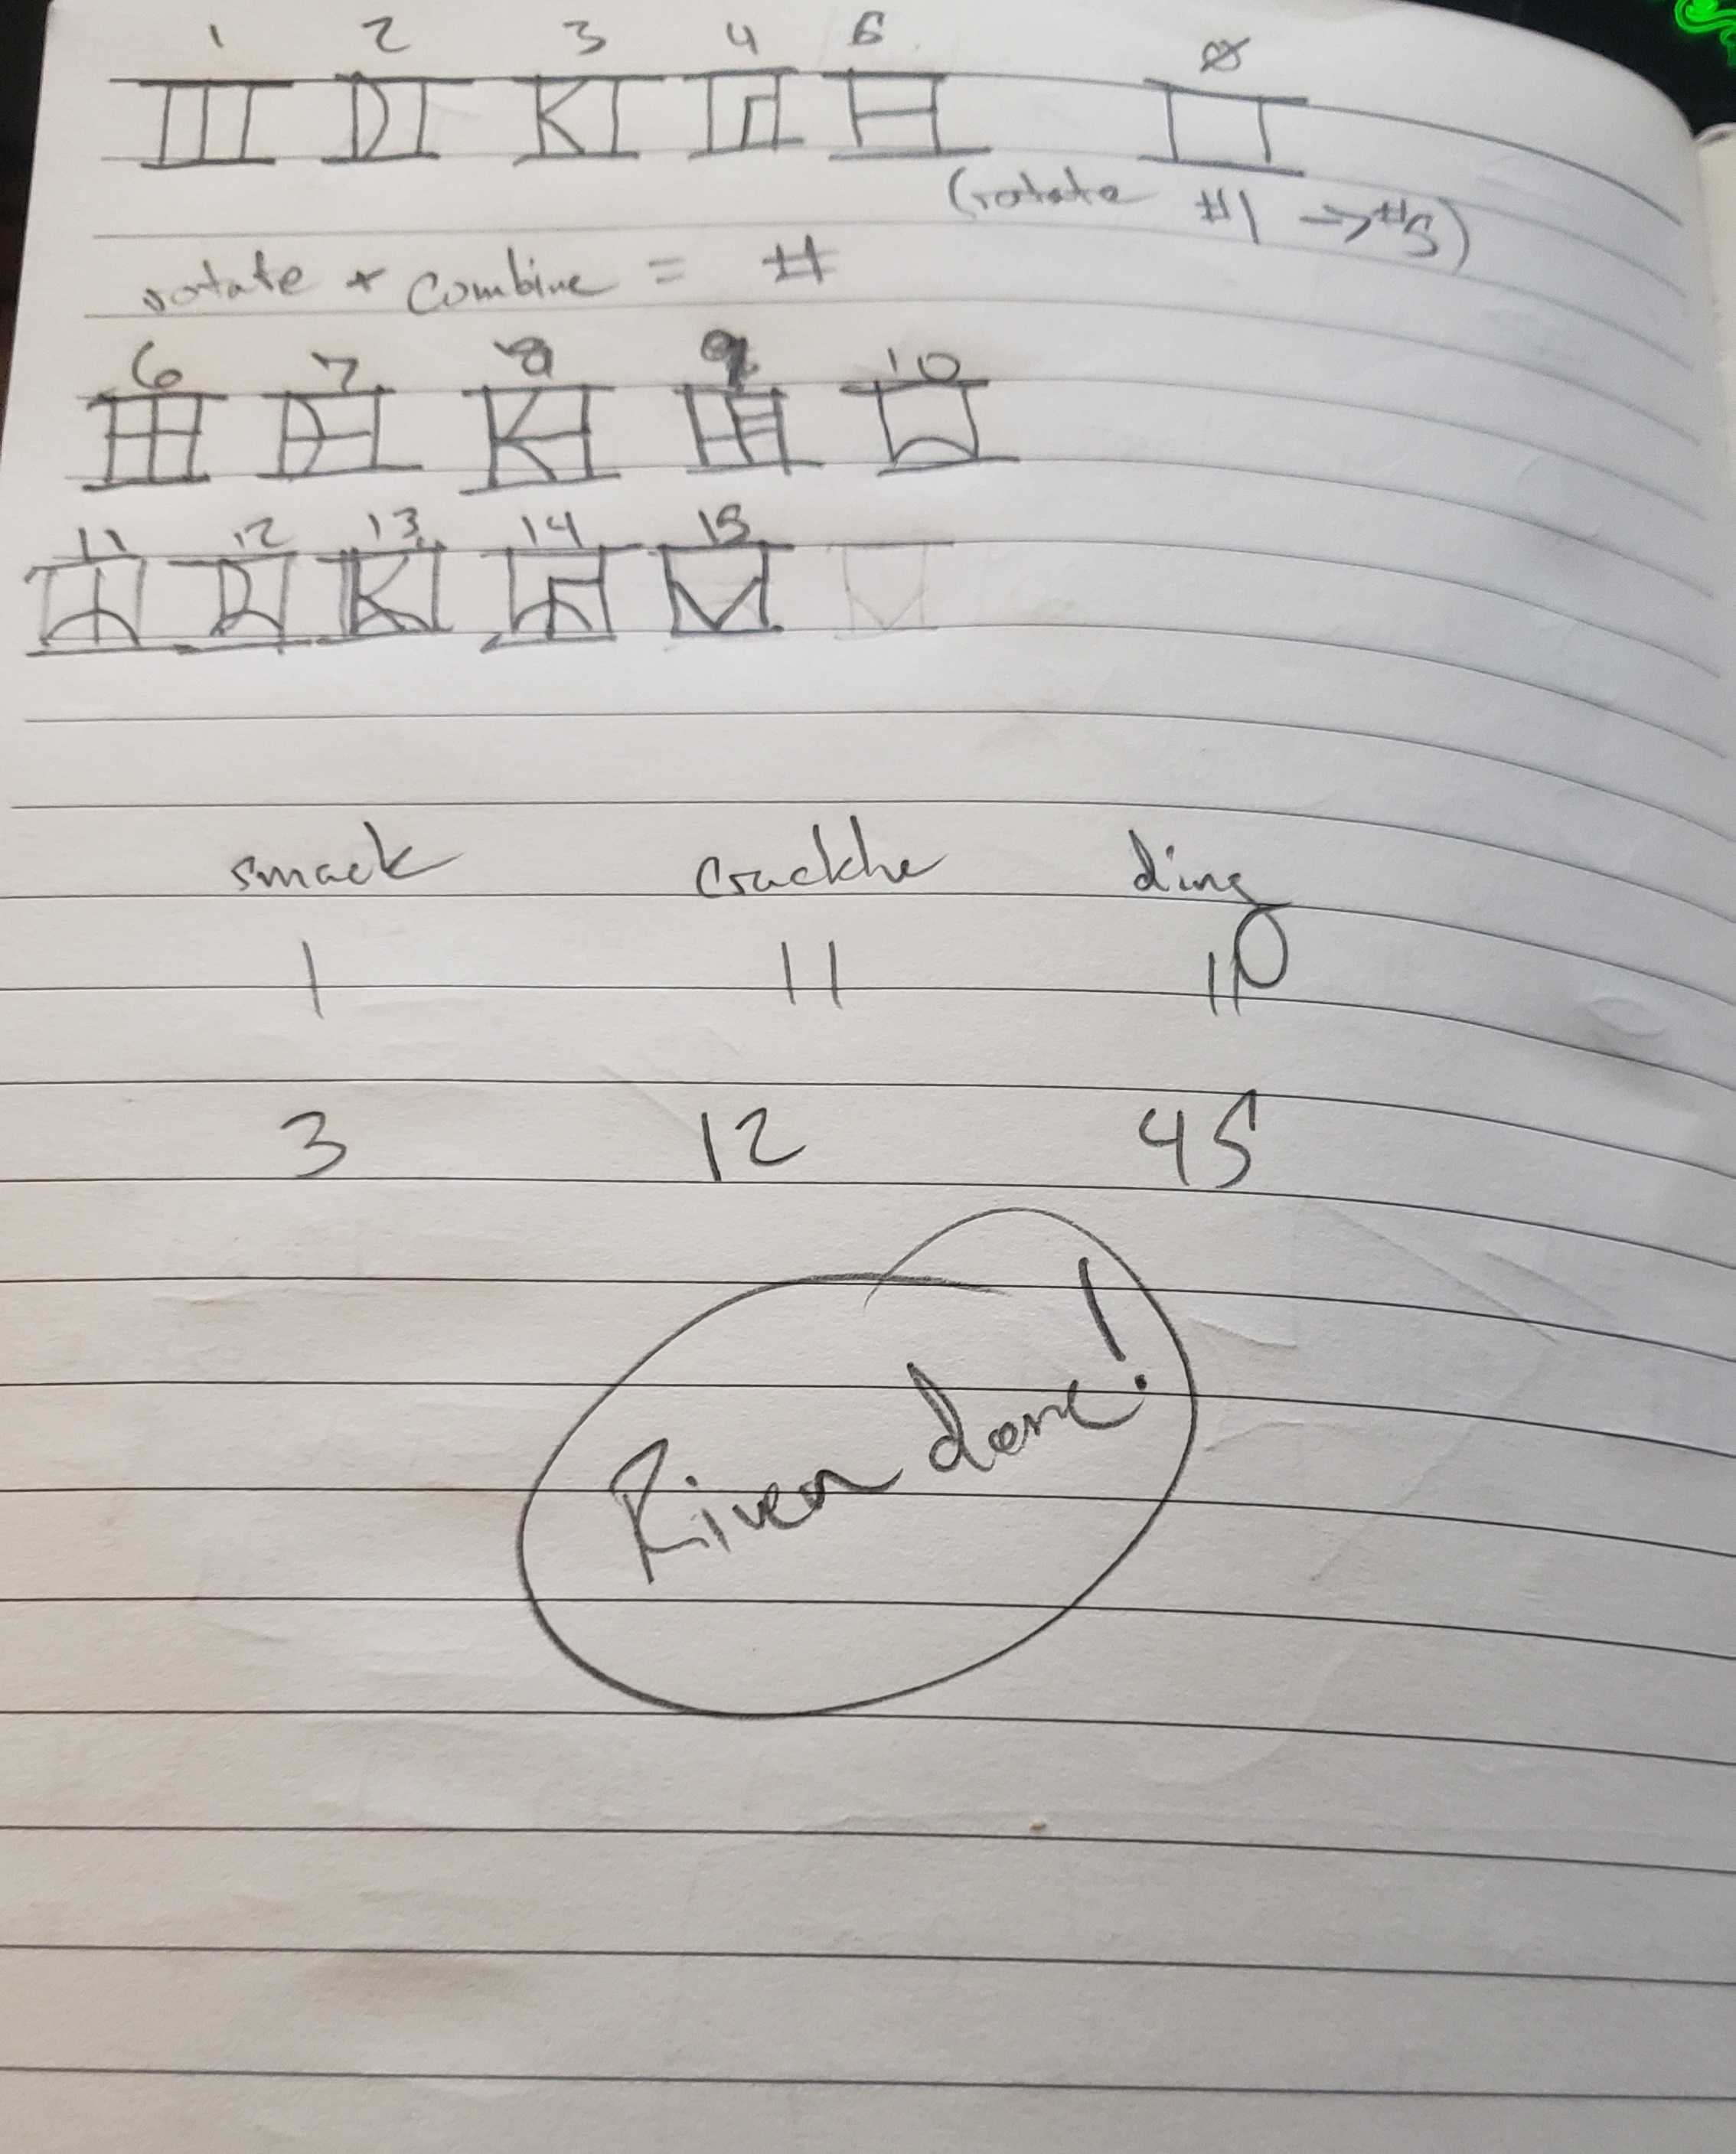 1 2 3 4 5 Ø
(rotate #1 → #5)
rotate + combine = #
6 7 8 9 10
11 12 13 14 15
smack crackhe ding
1 11
3 12 45
Riven done!